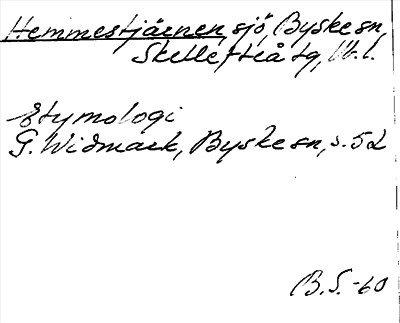 Hemmestjärnen, sjö, Byske sn,
Skellefteå tg, Vb. l.
Etymologi
G. Widmark, Byske sn, s. 52
B.S. -60